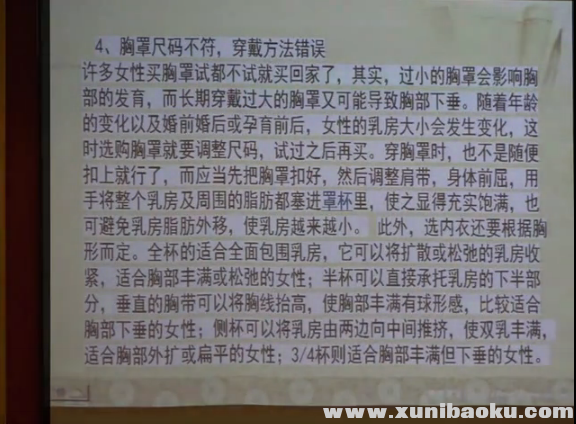 4、胸罩尺码不符，穿戴方法错误
许多女性买胸罩试都不试就买回家了，其实，过小的胸罩会影响胸
部的发育，而长期穿戴过大的胸罩又可能导致胸部下垂。随着年龄
的变化以及婚前婚后或孕育前后，女性的乳房大小会发生变化，这
时选购胸罩就要调整尺码，试过之后再买。穿胸罩时，也不是随便
扣上就行了，而应当先把胸罩扣好，然后调整肩带，身体前屈，用
手将整个乳房及周围的脂肪都塞进罩杯里，使之显得充实饱满，也
可避免乳房脂肪外移，使乳房越来越小。 此外，选内衣还要根据胸
形而定。全杯的适合全面包围乳房，它可以将扩散或松弛的乳房收
紧，适合胸部丰满或松弛的女性；半杯可以直接承托乳房的下半部
分，垂直的胸带可以将胸线抬高，使胸部丰满有球形感，比较适合
胸部下垂的女性；侧杯可以将乳房由两边向中间推挤，使双乳丰满，
适合胸部外扩或扁平的女性；3/4杯则适合胸部丰满但下垂的女性。
www.xunibaoku.com